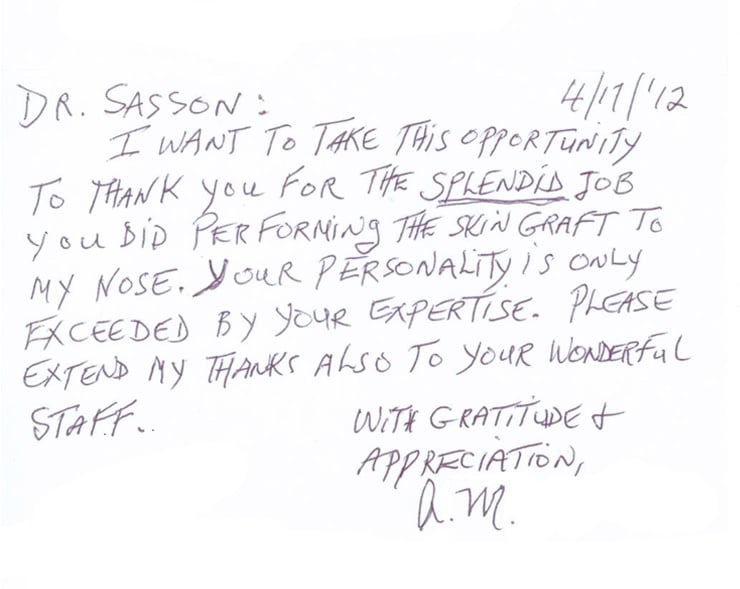 DR. SASSON: 4/17/'12
I WANT TO TAKE THIS OPPORTUNITY
TO THANK you FOR THE SPLENDID JOB
you DID PERFORMING THE SKIN GRAFT TO
MY NOSE. YOUR PERSONALITY IS ONLY
EXCEEDED BY YOUR EXPERTISE. PLEASE
EXTEND MY THANKS ALSO TO YOUR WONDERFUL
STAFF..
WITH GRATITUDE &
APPRECIATION,
A.M.